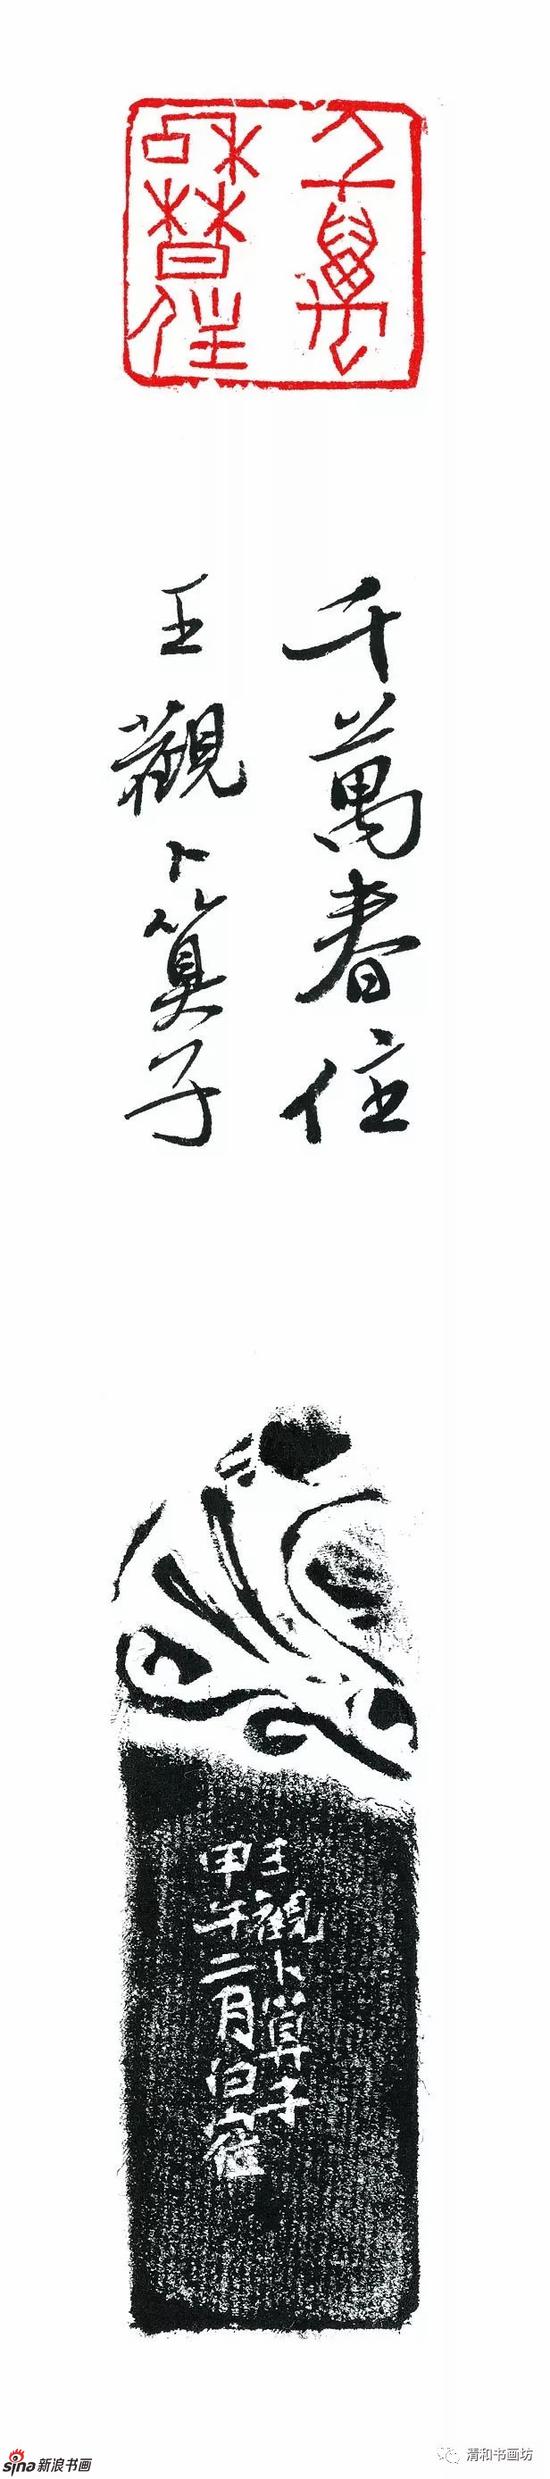 千萬
咊春住
千萬春住
王觀卜算子
王觀卜算子
甲午二月
sina新浪书画
清和书画坊